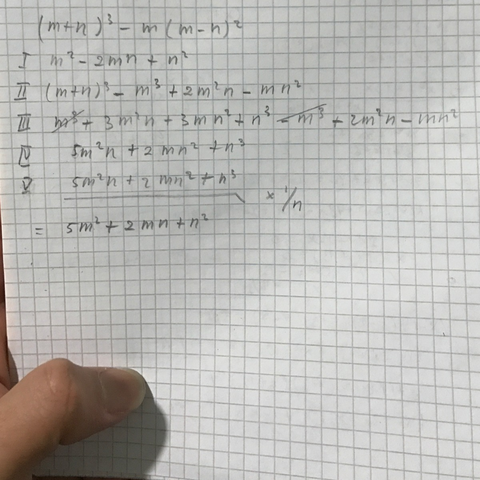 (m+n)³ - m(m-n)²
I m² - 2mn + n²
II (m+n)³ - m³ + 2m²n - mn²
III m³ + 3m²n + 3mn² + n³ - m³ + 2m²n - mn²
IV 5m²n + 2mn² + n³
V 5m²n + 2mn² + n³ × 1/n
= 5m² + 2mn + n²